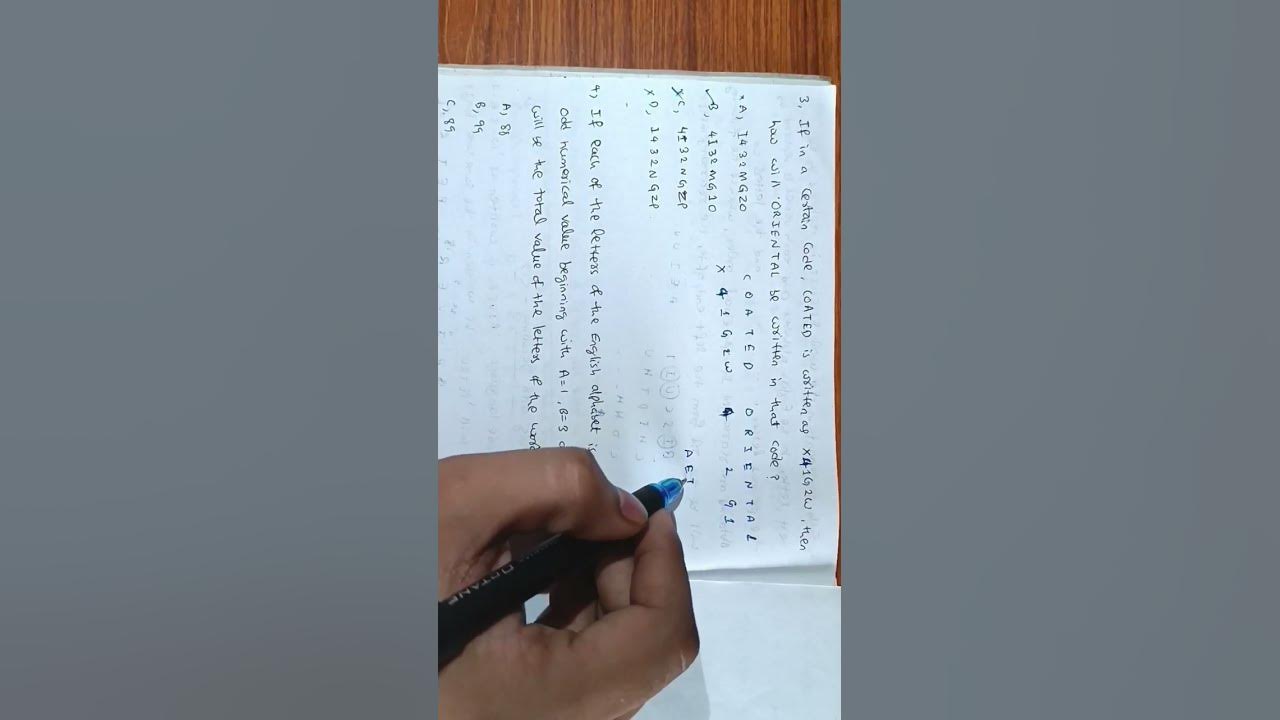 3, If in a certain code, COATED is written as X41G2W, then
how will ORIENTAL be written in that code?
× A, I432MGZO
✓ B, 4I32MG1O
× C, 4I32NGZP
× D, I432NGZP
C O A T E D O R I E N T A L
X 4 1 G 2 W 4 2 G 1
A E I
4, If each of the letters of the English alphabet is
odd numerical value beginning with A=1, B=3
will be the total value of the letters of the
A, 88
B, 99
C, 89
OCTANE